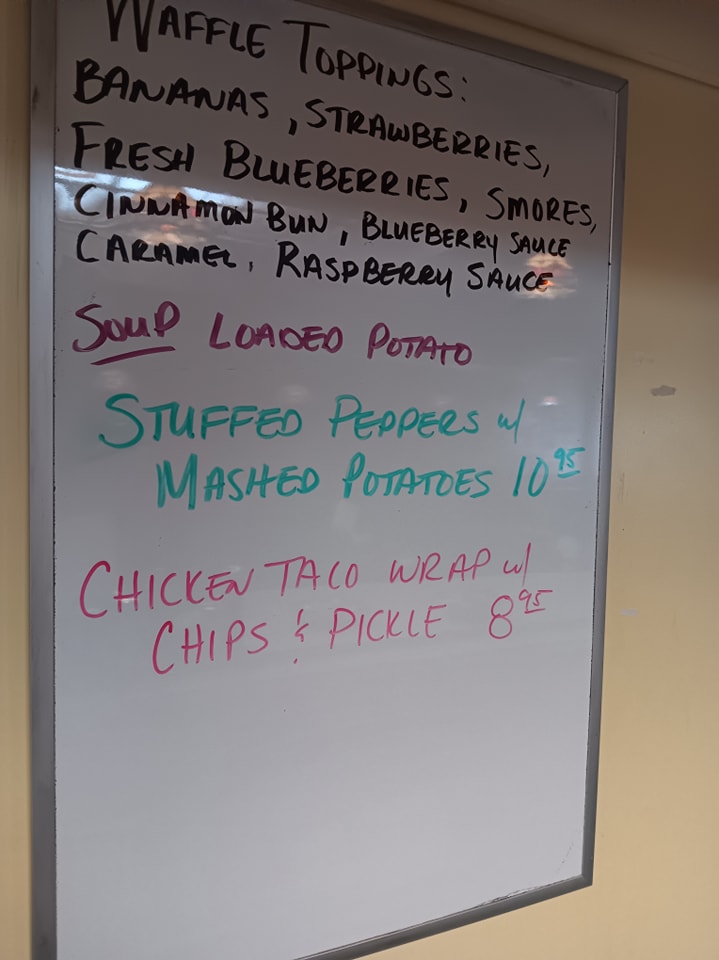 WAFFLE TOPPINGS:
BANANAS, STRAWBERRIES,
FRESH BLUEBERRIES, SMORES,
CINNAMON BUN, BLUEBERRY SAUCE
CARAMEL, RASPBERRY SAUCE
SOUP LOADED POTATO
STUFFED PEPPERS w/
MASHED POTATOES 10 95
CHICKEN TACO WRAP w/
CHIPS & PICKLE 8 95